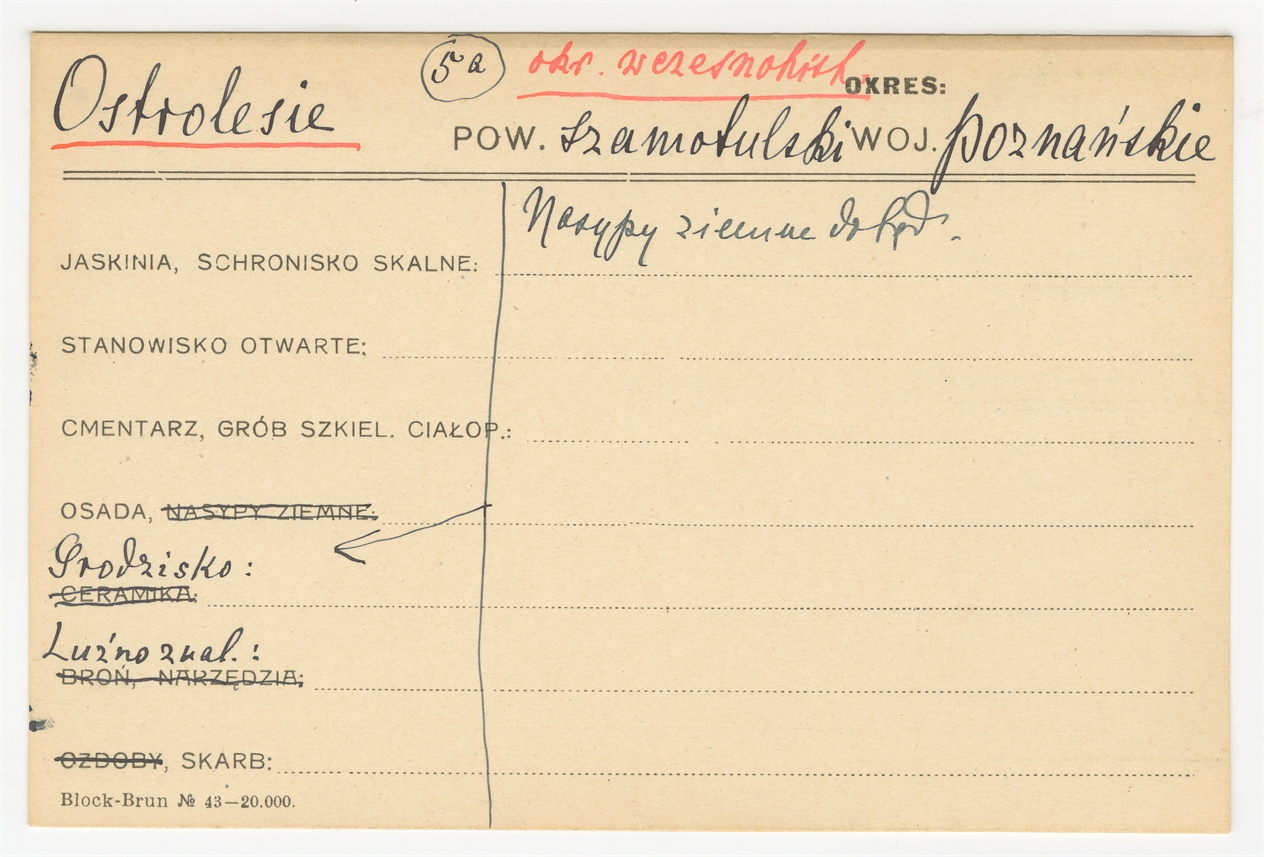 Ostrolesie 5a okr. wczesnohist. OKRES:
POW. szamotulski WOJ. poznańskie
Nasypy ziemne
JASKINIA, SCHRONISKO SKALNE:
STANOWISKO OTWARTE:
CMENTARZ, GRÓB SZKIEL. CIAŁOP.:
OSADA, NASYPY ZIEMNE:
Grodzisko:
CERAMIKA:
Luźno znal.:
BROŃ, NARZĘDZIA:
OZDOBY, SKARB:
Block-Brun № 43—20.000.